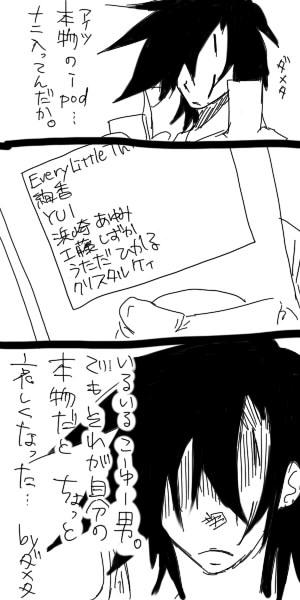 アイツ
本物のiーpod…
ナニ入ってんだか。
ダメタ
Every Little Th
絢香
YUI
浜崎あゆみ
工藤しずか
うただひかる
クリスタルケイ
いるいるこーゆー男。
でもそれが自分の
本物だと ちょっと
哀しくなった…
byダメタ